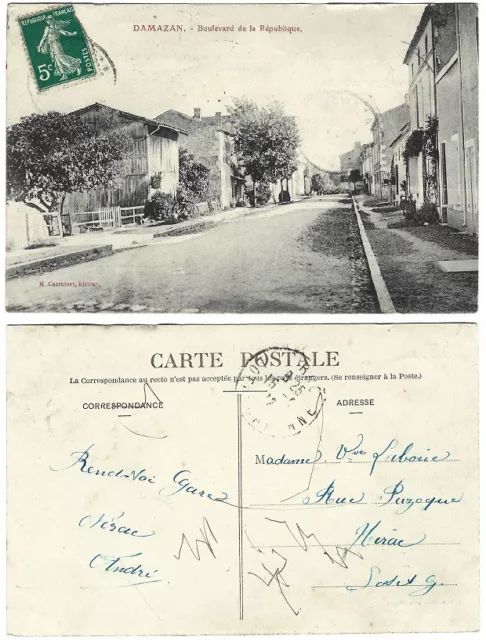 DAMAZAN. - Boulevard de la République.
REPUBLIQUE FRANÇAISE
5c POSTES
CARTE POSTALE
La Correspondance au recto n'est pas acceptée par tous les pays étrangers. (Se renseigner à la Poste.)
CORRESPONDANCE
Rend-Voi Gare
Nérac
André
ADRESSE
Madame Vve Laborie
Rue Puzoque
Nérac
Lot et G.